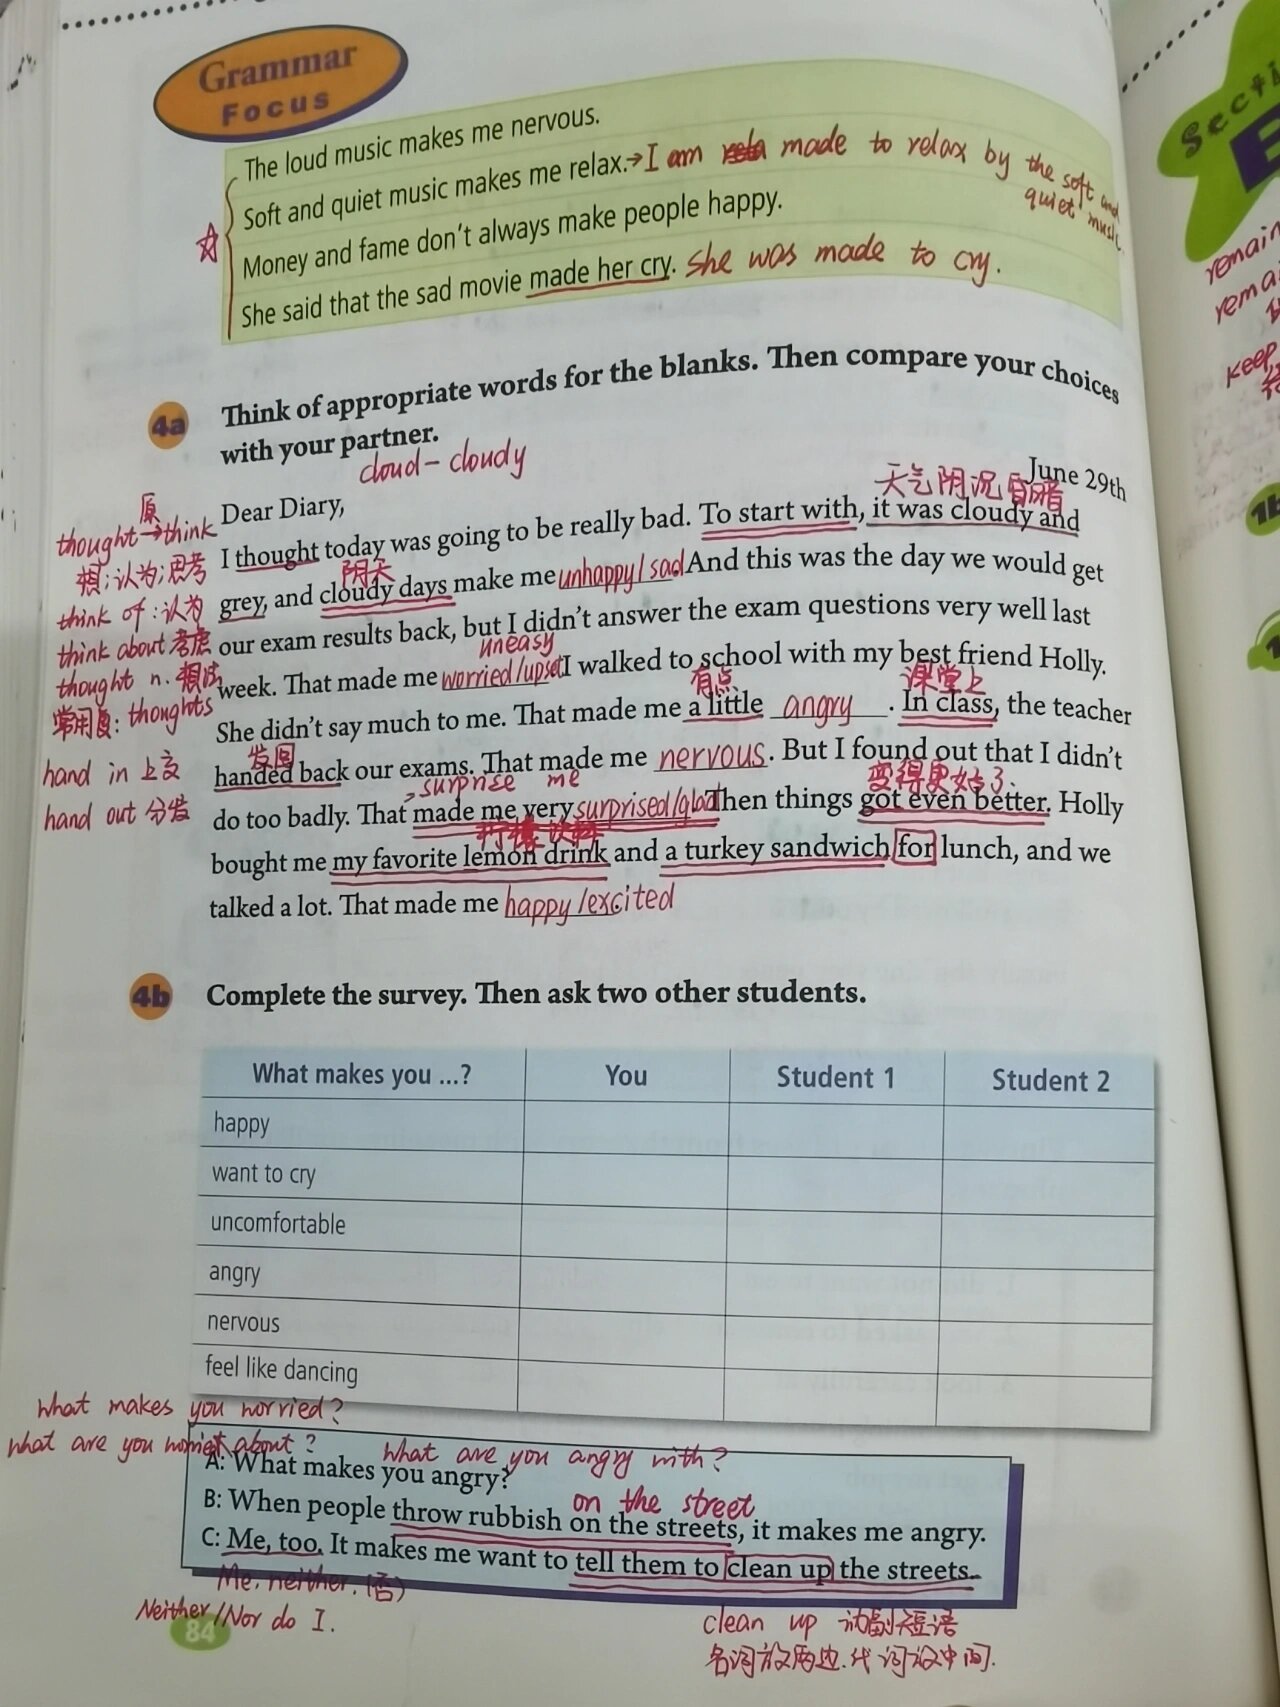 Grammar
Focus
The loud music makes me nervous.
Soft and quiet music makes me relax.→I am made to relax by the soft and
quiet music
Money and fame don't always make people happy.
She said that the sad movie made her cry. She was made to cry.
Secti
remain
rema
keep
4a Think of appropriate words for the blanks. Then compare your choices
with your partner.
cloud - cloudy
June 29th
天气阴沉昏暗
Dear Diary,
原
thought→think
想;认为;思考
think of:认为
think about 考虑
thought n. 想法
常用复: thoughts
hand in 上交
hand out 分发
I thought today was going to be really bad. To start with, it was cloudy and
阴天
grey, and cloudy days make me unhappy/sad And this was the day we would get
our exam results back, but I didn't answer the exam questions very well last
uneasy
week. That made me worried/upset I walked to school with my best friend Holly.
有点 课堂上
She didn't say much to me. That made me a little angry . In class, the teacher
发回
handed back our exams. That made me nervous. But I found out that I didn't
surprise me 变得更好了.
do too badly. That made me very surprised/glad Then things got even better. Holly
柠檬饮料
bought me my favorite lemon drink and a turkey sandwich for lunch, and we
talked a lot. That made me happy/excited
4b Complete the survey. Then ask two other students.
What makes you ...? You Student 1 Student 2
happy
want to cry
uncomfortable
angry
nervous
feel like dancing
What makes you worried?
what are you about? What are you angry with?
A: What makes you angry?
on the street
B: When people throw rubbish on the streets, it makes me angry.
C: Me, too. It makes me want to tell them to clean up the streets.
Me, neither. (否)
Neither/Nor do I.
84
clean up 动副短语
名词放两边.代词放中间.